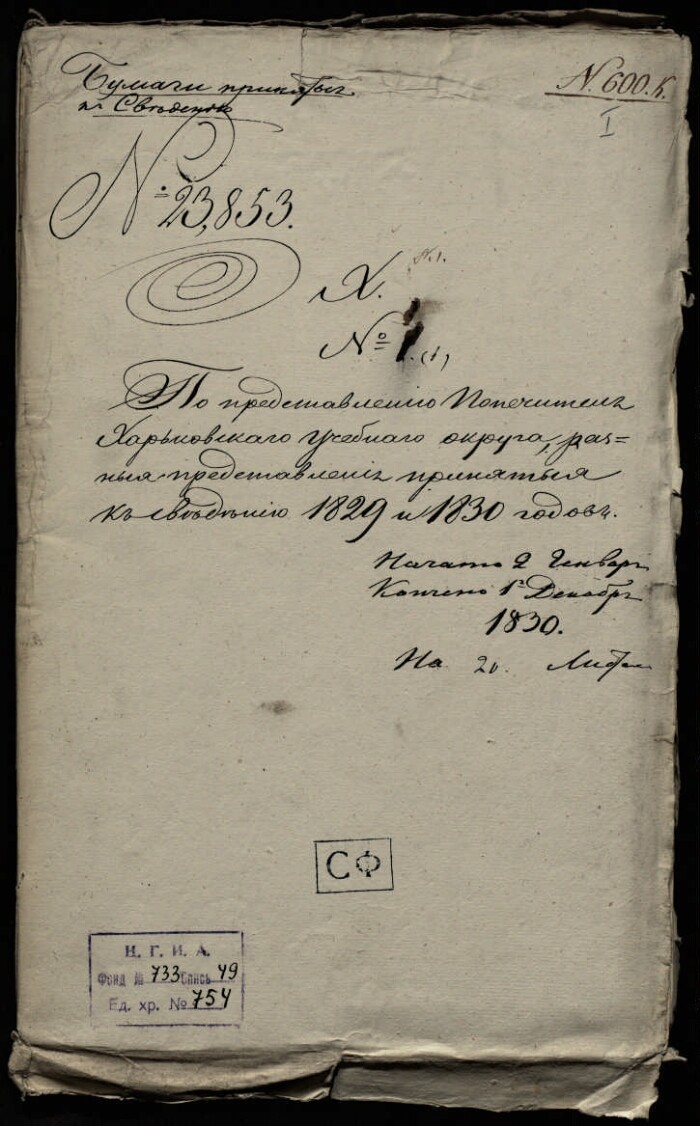 Бумаги принятыя
къ Свѣденію
N. 600. К.
I
№ 23,853.
Х.
№ 1. (1)
По представленію Попечителя
Харьковскаго учебнаго округа, раз=
ныя представленія принятыя
къ свѣдѣнію 1829 и 1830 годовъ.
Начато 2 Генваря
Кончено 1º Декабря
1830.
На 20. Листахъ
СФ
Ц. Г. И. А.
Фонд № 733 Опись 49
Ед. хр. № 754